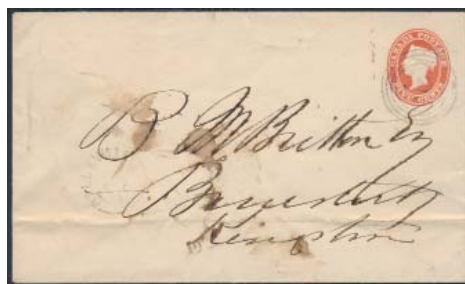 CANADA POSTAGE
FIVE CENTS
B M Britton Esq
Barrister
Kingston